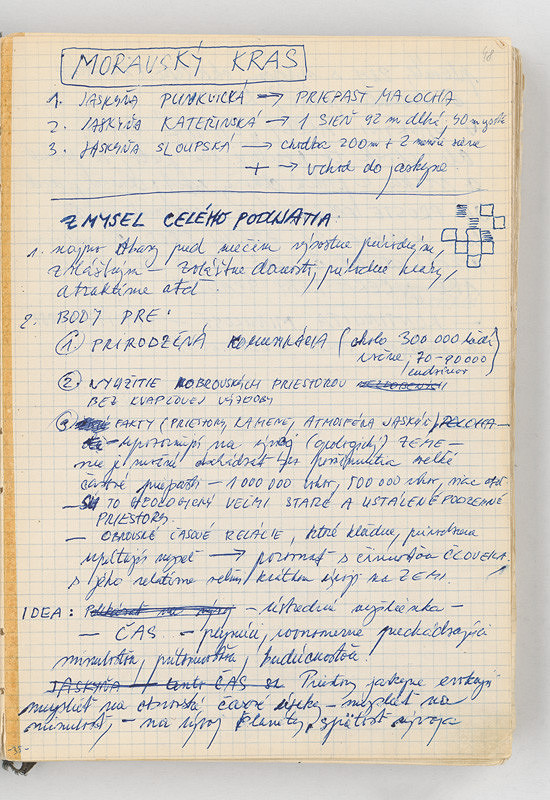 48
MORAVSKÝ KRAS
1. JASKYŇA PUNKVICKÁ → PRIEPASŤ MACOCHA
2. JASKYŇA KATEŘINSKÁ → 1 SIEŇ 92 m dlhá,
3. JASKYŇA SLOUPSKÁ → chodba 200 m + 2 menšie siene
+ → vchod do jaskyne
ZMYSEL CELÉHO PODUJATIA:
1. najprv
zvláštnym — zvláštne danosti, prírodné krásy,
atraktívne atď.
2. BODY PRE:
① PRIRODZENÁ KOMUNIKÁCIA (okolo 300 000 ľudí
ročne, 70-90 000
cudzincov)
② VYUŽITIE OBROVSKÝCH PRIESTOROV
BEZ KVAPĽOVEJ VÝZDOBY
③ FAKTY (PRIESTORY, KAMENE, ATMOSFÉRA JASKÝŇ)
— upozorňujú na vývoj (geologický) ZEME —
nie je nutné
časové priepasti — 1 000 000 rokov, 500 000 rokov, viac atď
— SÚ TO GEOLOGICKY VEĽMI STARÉ A USTÁLENÉ PODZEMNÉ
PRIESTORY.
— OBROVSKÉ ČASOVÉ RELÁCIE, ktoré kladne,
→ porovnať s činnosťou ČLOVEKA.
s jeho relatívne veľmi krátkym vývojom na ZEMI.
IDEA: — ústredná myšlienka —
— ČAS — plynúci, rovnomerne prechádzajúci
minulosťou, prítomnosťou, budúcnosťou.
JASKYŇA ČAS Priestory jaskyne evokujú
myslieť na obrovské časové úseky — myslieť na
minulosť, — na vývoj planéty, spätosť vývoja
-35-